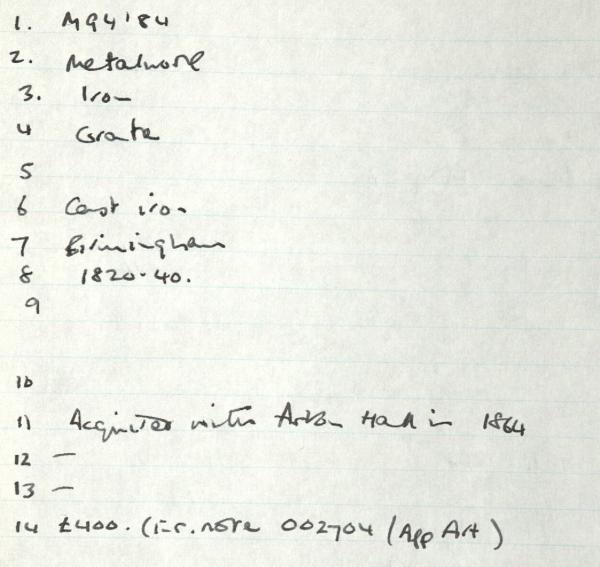 1. M94'84
2. Metalwork
3. Iron
4 Grate
5
6 Cast iron
7 Birmingham
8 1820-40.
9
10
11 Acquired with Aston Hall in 1864
12 —
13 —
14 £400. ( note 002704 (App Art)